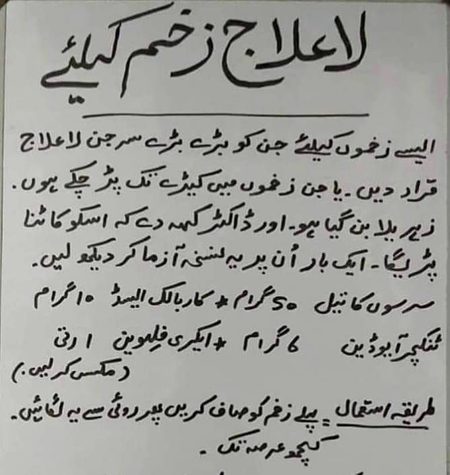 لا علاج زخم کیلئے
ایسے زخموں کیلئے جن کو بڑے بڑے سرجن لا علاج
قرار دیں۔ یا جن زخموں میں کیڑے تک پڑ چکے ہوں۔
زہریلا بن گیا ہو۔ اور ڈاکٹر کہہ دے کہ اسکو کاٹنا
پڑیگا۔ ایک بار اُن پر یہ نسخہ آزما کر دیکھ لیں۔
سرسوں کا تیل 50 گرام * کاربالک ایسڈ 10 گرام
ٹنکچر آیوڈین 6 گرام * ایکری فلیوین 1 رتی
(مکس کر لیں)
طریقہ استعمال = پہلے زخم کو صاف کریں پھر روئی سے یہ لگائیں۔
کچھ عرصہ تک۔